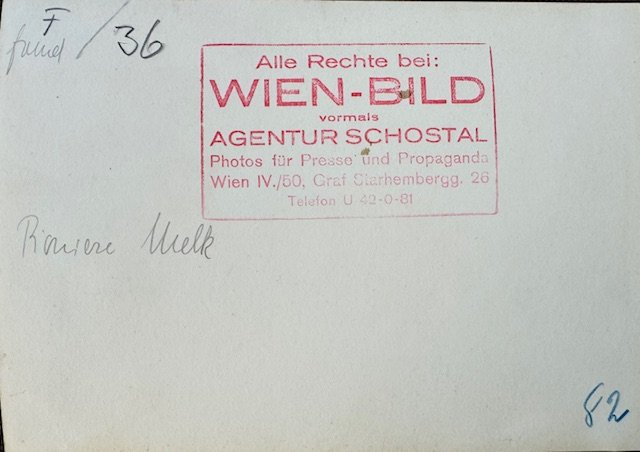 F
/36
Alle Rechte bei:
WIEN-BILD
vormals
AGENTUR SCHOSTAL
Photos für Presse und Propaganda
Wien IV./50, Graf Starhembergg. 26
Telefon U 42-0-81
Pioniere Melk
82